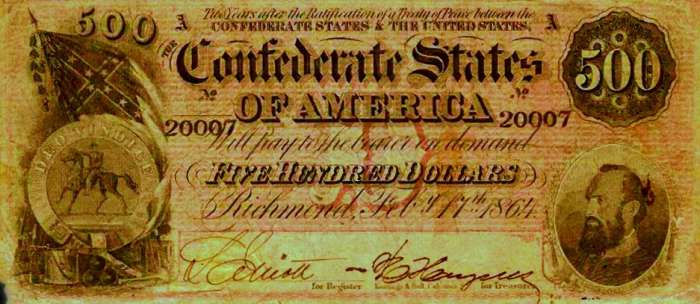 Two Years after the Ratification of a Treaty of Peace between the
CONFEDERATE STATES & THE UNITED STATES,
500 A A
THE
Confederate States 500
Nº OF AMERICA Nº
20007 20007
Will pay to the bearer on demand
FIVE HUNDRED DOLLARS
Richmond, Feby 17th 1864
DEO VINDICE
for Register for Treasurer